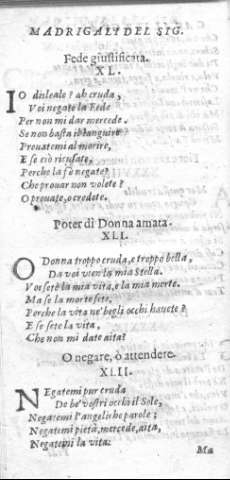 MADRIGALI DEL SIG.
Fede giustificata.
XL.
IO disleale? ah cruda,
Voi negate la Fede
Per non mi dar mercede.
Se non basta il languire
Prouatemi al morire,
E se ciò ricusate,
Perche la fè negate?
Che prouar non volete?
O prouate, o credete.
Poter di Donna amata.
XLI.
O Donna troppo cruda, e troppo bella,
Da voi vien la mia Stella.
Voi sete la mia vita, e la mia morte.
Ma se la morte sete,
Perche la vita ne' begli occhi hauete?
E se sete la vita,
Che non mi date aita?
O negare, ò attendere.
XLII.
NEgatemi pur cruda
De be' vostri occhi il Sole,
Negatemi l'angeliche parole;
Negatemi pietà, mercede, aita,
Negatemi la vita.
Ma